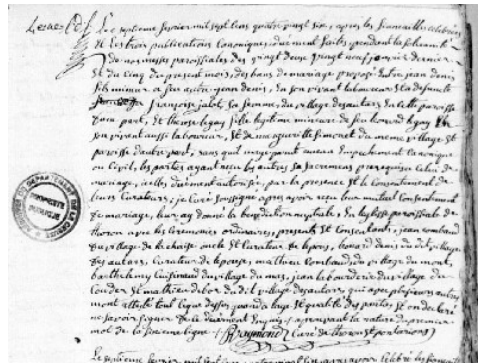 Le septieme fevrier mil sept cens quatre vingt six, apres les fiancailles celebrées
Et les trois publications Canoniques, duement faites pendant la solemnité
de nos messes paroissiales des vingt deux, vingt neuf janvier dernier
Et du cinq du present mois, des bans de mariage proposé Entre jean denis
fils mineur a feu jean denis, En son vivant laboureur Et a defunte
françoise jabet, sa femme du village des autars En cette paroisse
d'un part, Et therese legay fille legitime mineure de feu leonard legay
son vivant aussi laboureur, Et de marguerite simonet du meme village Et
paroisse d'autre part, sans qu'il n'aye paru aucun Empechement canonique
ou Civil, les parties ayant recu les autres Sacremens prerequis a celui de
mariage, icelles duement autorisée par la presence Et le Consentement de
leurs Curateurs, je Curé soussigné apres avoir recu leur mutuel Consentement
de mariage, leur ay donné la benediction nuptiale En l'eglise paroissiale de
thoron avec les Ceremonies ordinaires, presents Et Consentants, jean
du village de oncle Et Curateur de l'epoux, leonard denis du dit village
des autars, Curateur de l'epouse, mathieu du village du mont,
barthelemy du village du mas, jean du village du
Et mathieu du dit village des autars, qui apres plusieurs autres
mont attesté tout ce que dessus, quand a l'age Et qualité des parties Et on declaré
ne savoir signer de ce duement Enquis approuvant la rature du premier
mot de la sixieme ligne Raymond Curé de thoron Et pontarion
Le septieme fevrier mil sept cens
ARCHIVES DU DEPARTEMENT DE LA CREUSE
PROPRIETE PUBLIQUE